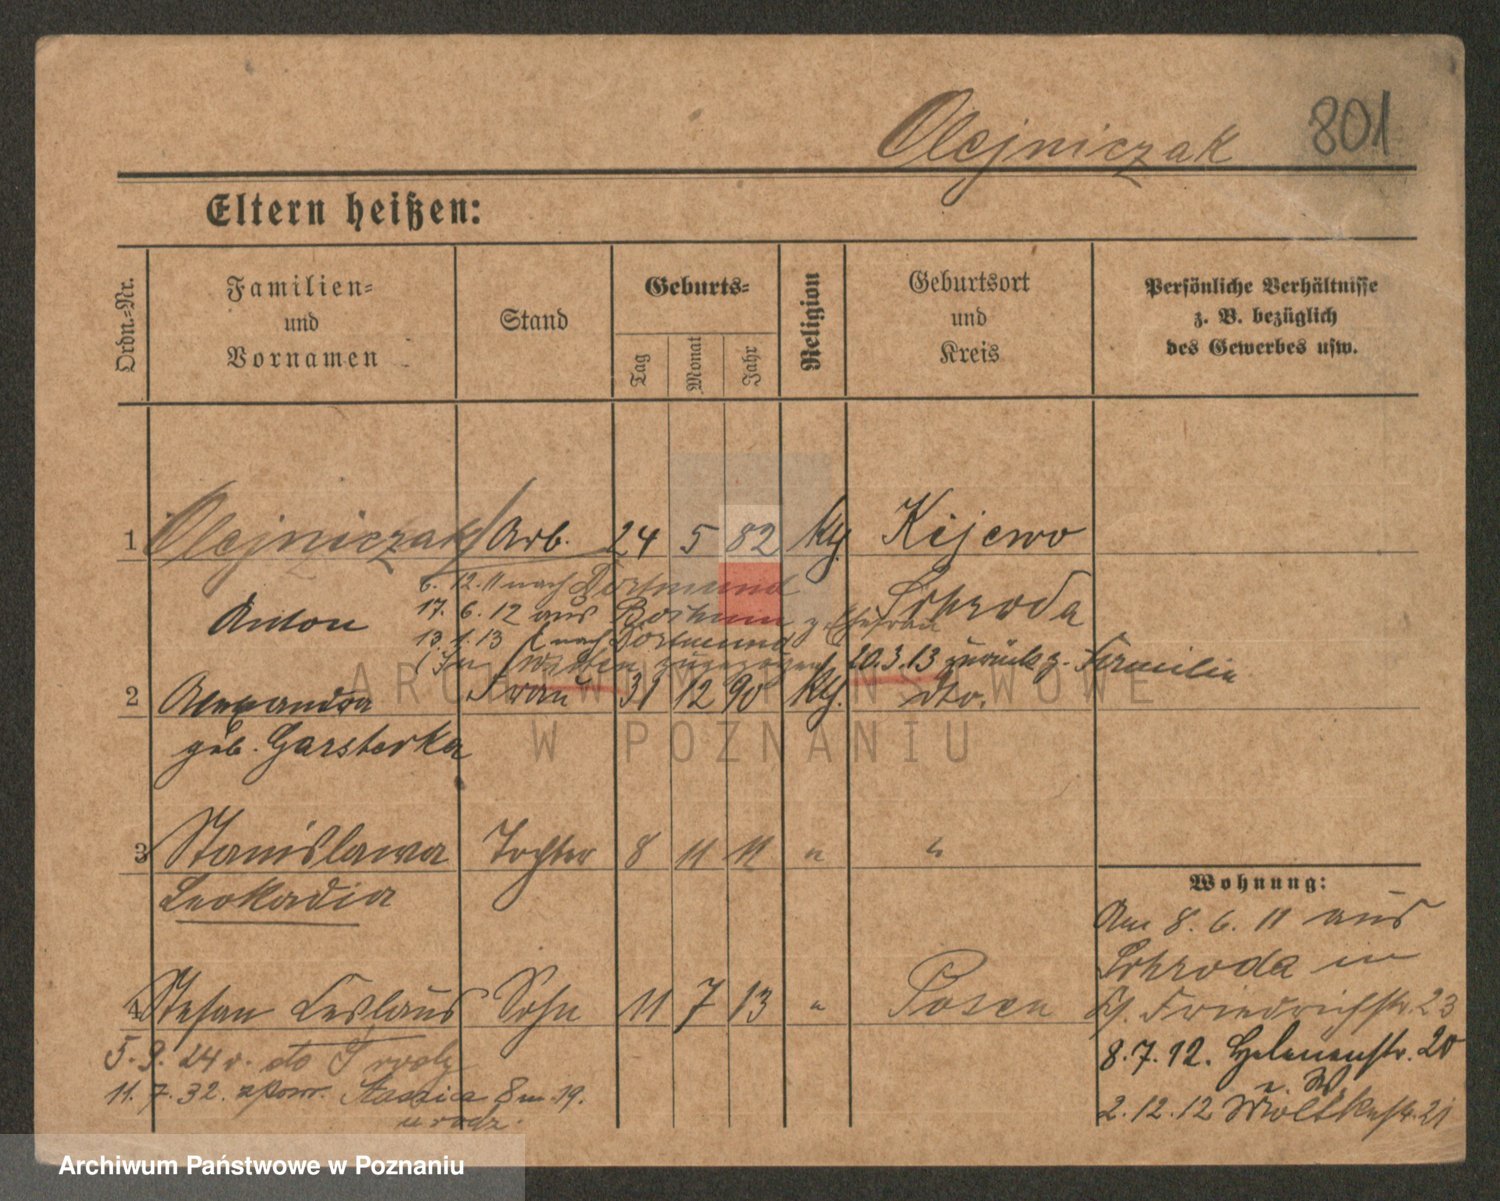 Olejniczak 801
Eltern heißen:
Ordn.=Nr.
Familien=
und
Vornamen
Stand
Geburts=
Tag
Monat
Jahr
Religion
Geburtsort
und
Kreis
Persönliche Verhältnisse
z. B. bezüglich
des Gewerbes usw.
1 Olejniczak Arb. 24 5 82 kth. Kijewo
6. 12. 11 nach Dortmund
Anton
17. 6. 12 aus Bochum z. Ehefrau
Schroda
13. 1. 13 nach Dortmund
20. 3. 13 zurück z. Familie
2 Alexandra Frau 31 12 90 kth. dto.
geb. Garsterka
3 Stanislawa Tochter 8 11 11 " "
Leokadia
4 Stefan Leslaus Sohn 11 7 13 " Posen
5. 9. 24 r. do Środy
11. 7. 32. z pow. Staszica 8 m. 19.
u rodz.
Wohnung:
Am 8. 6. 11 aus
Schroda in
Friedrichstr. 23
8. 7. 12. Helenenstr. 20
2. 12. 12 Moltkestr. 21
ARCHIWUM PAŃSTWOWE
W POZNANIU
Archiwum Państwowe w Poznaniu